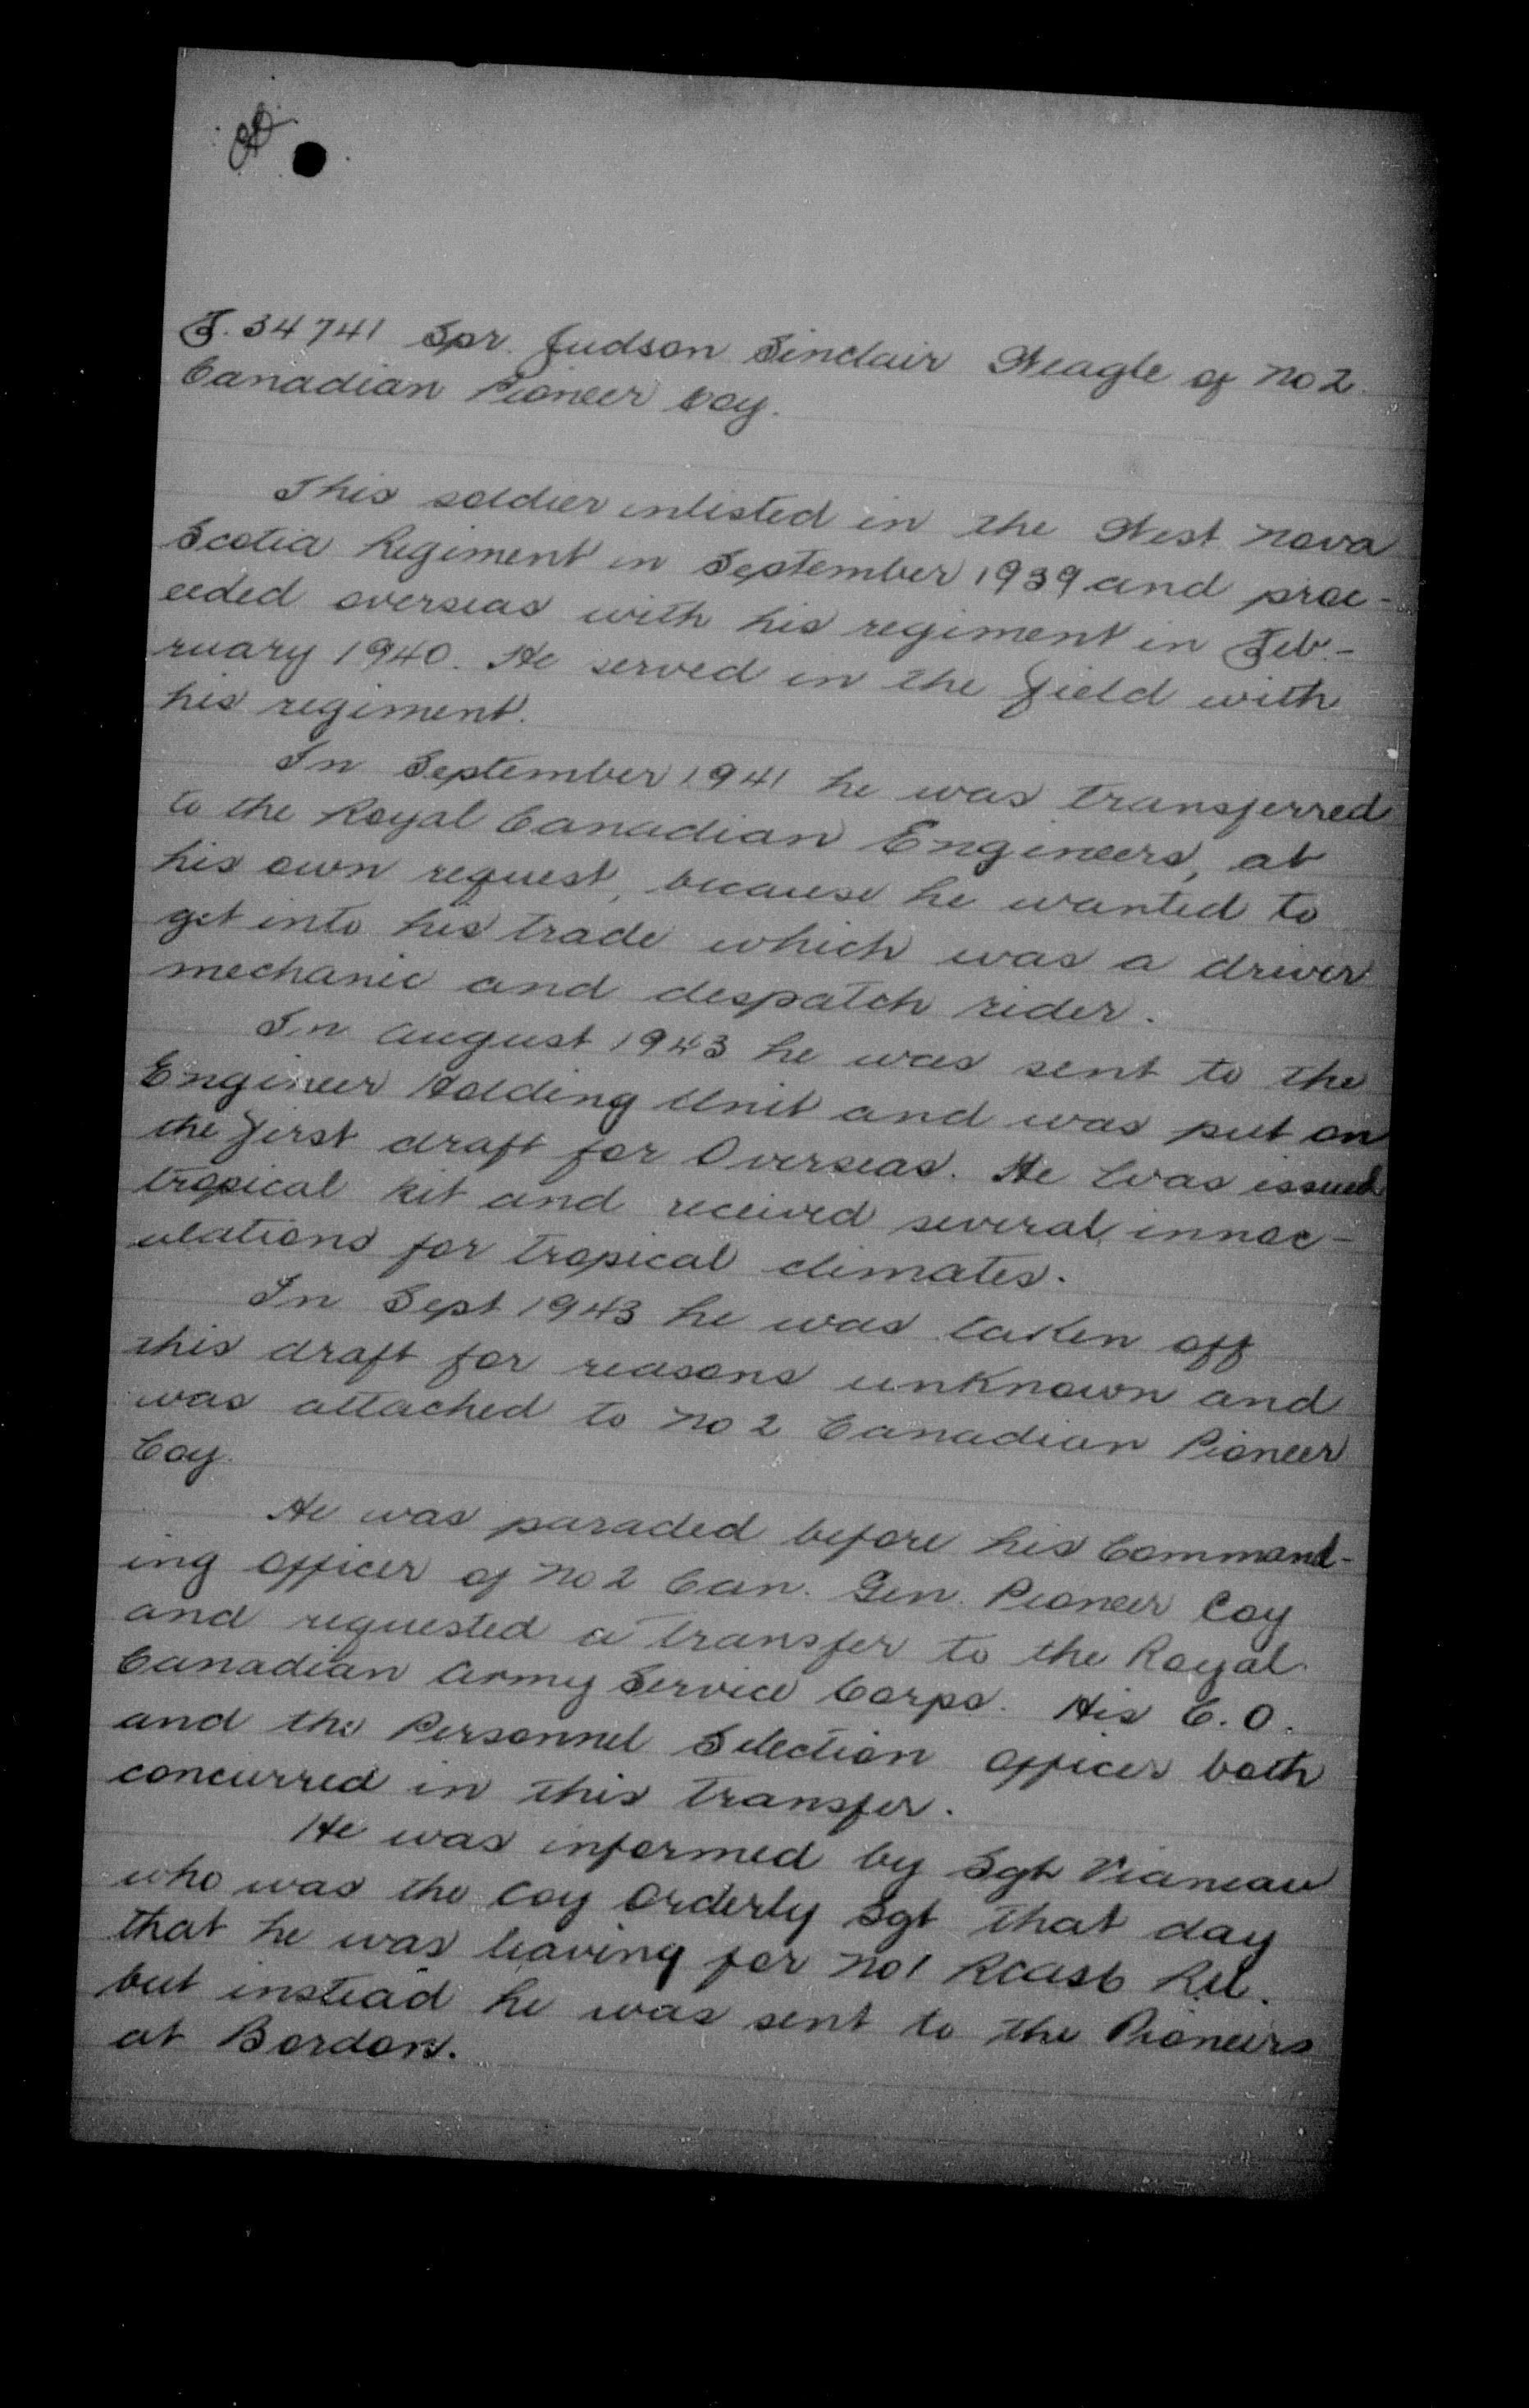 F. 34741 Spr. Judson Sinclair Weagle of No 2
Canadian Pioneer Coy.
This soldier inlisted in the West Nova
Scotia Regiment in September 1939 and proc-
eeded overseas with his regiment in Feb-
ruary 1940. He served in the field with
his regiment.
In September 1941 he was transferred
to the Royal Canadian Engineers, at
his own request, because he wanted to
get into his trade which was a driver
mechanic and despatch rider.
In August 1943 he was sent to the
Engineer Holding Unit and was put on
the first draft for Overseas. He was issued
tropical kit and received several innoc-
ulations for tropical climates.
In Sept 1943 he was taken off
this draft for reasons unknown and
was attached to No 2 Canadian Pioneer
Coy.
He was paraded before his Command-
ing Officer of No 2 Can. Gen. Pioneer Coy
and requested a transfer to the Royal
Canadian Army Service Corps. His C.O.
and the Personnel Selection Officer both
concurred in this transfer.
He was informed by Sgt
who was the Coy Orderly Sgt that day
that he was leaving for No 1 RCASC R.U.
but instead he was sent to the Pioneers
at Bordon.